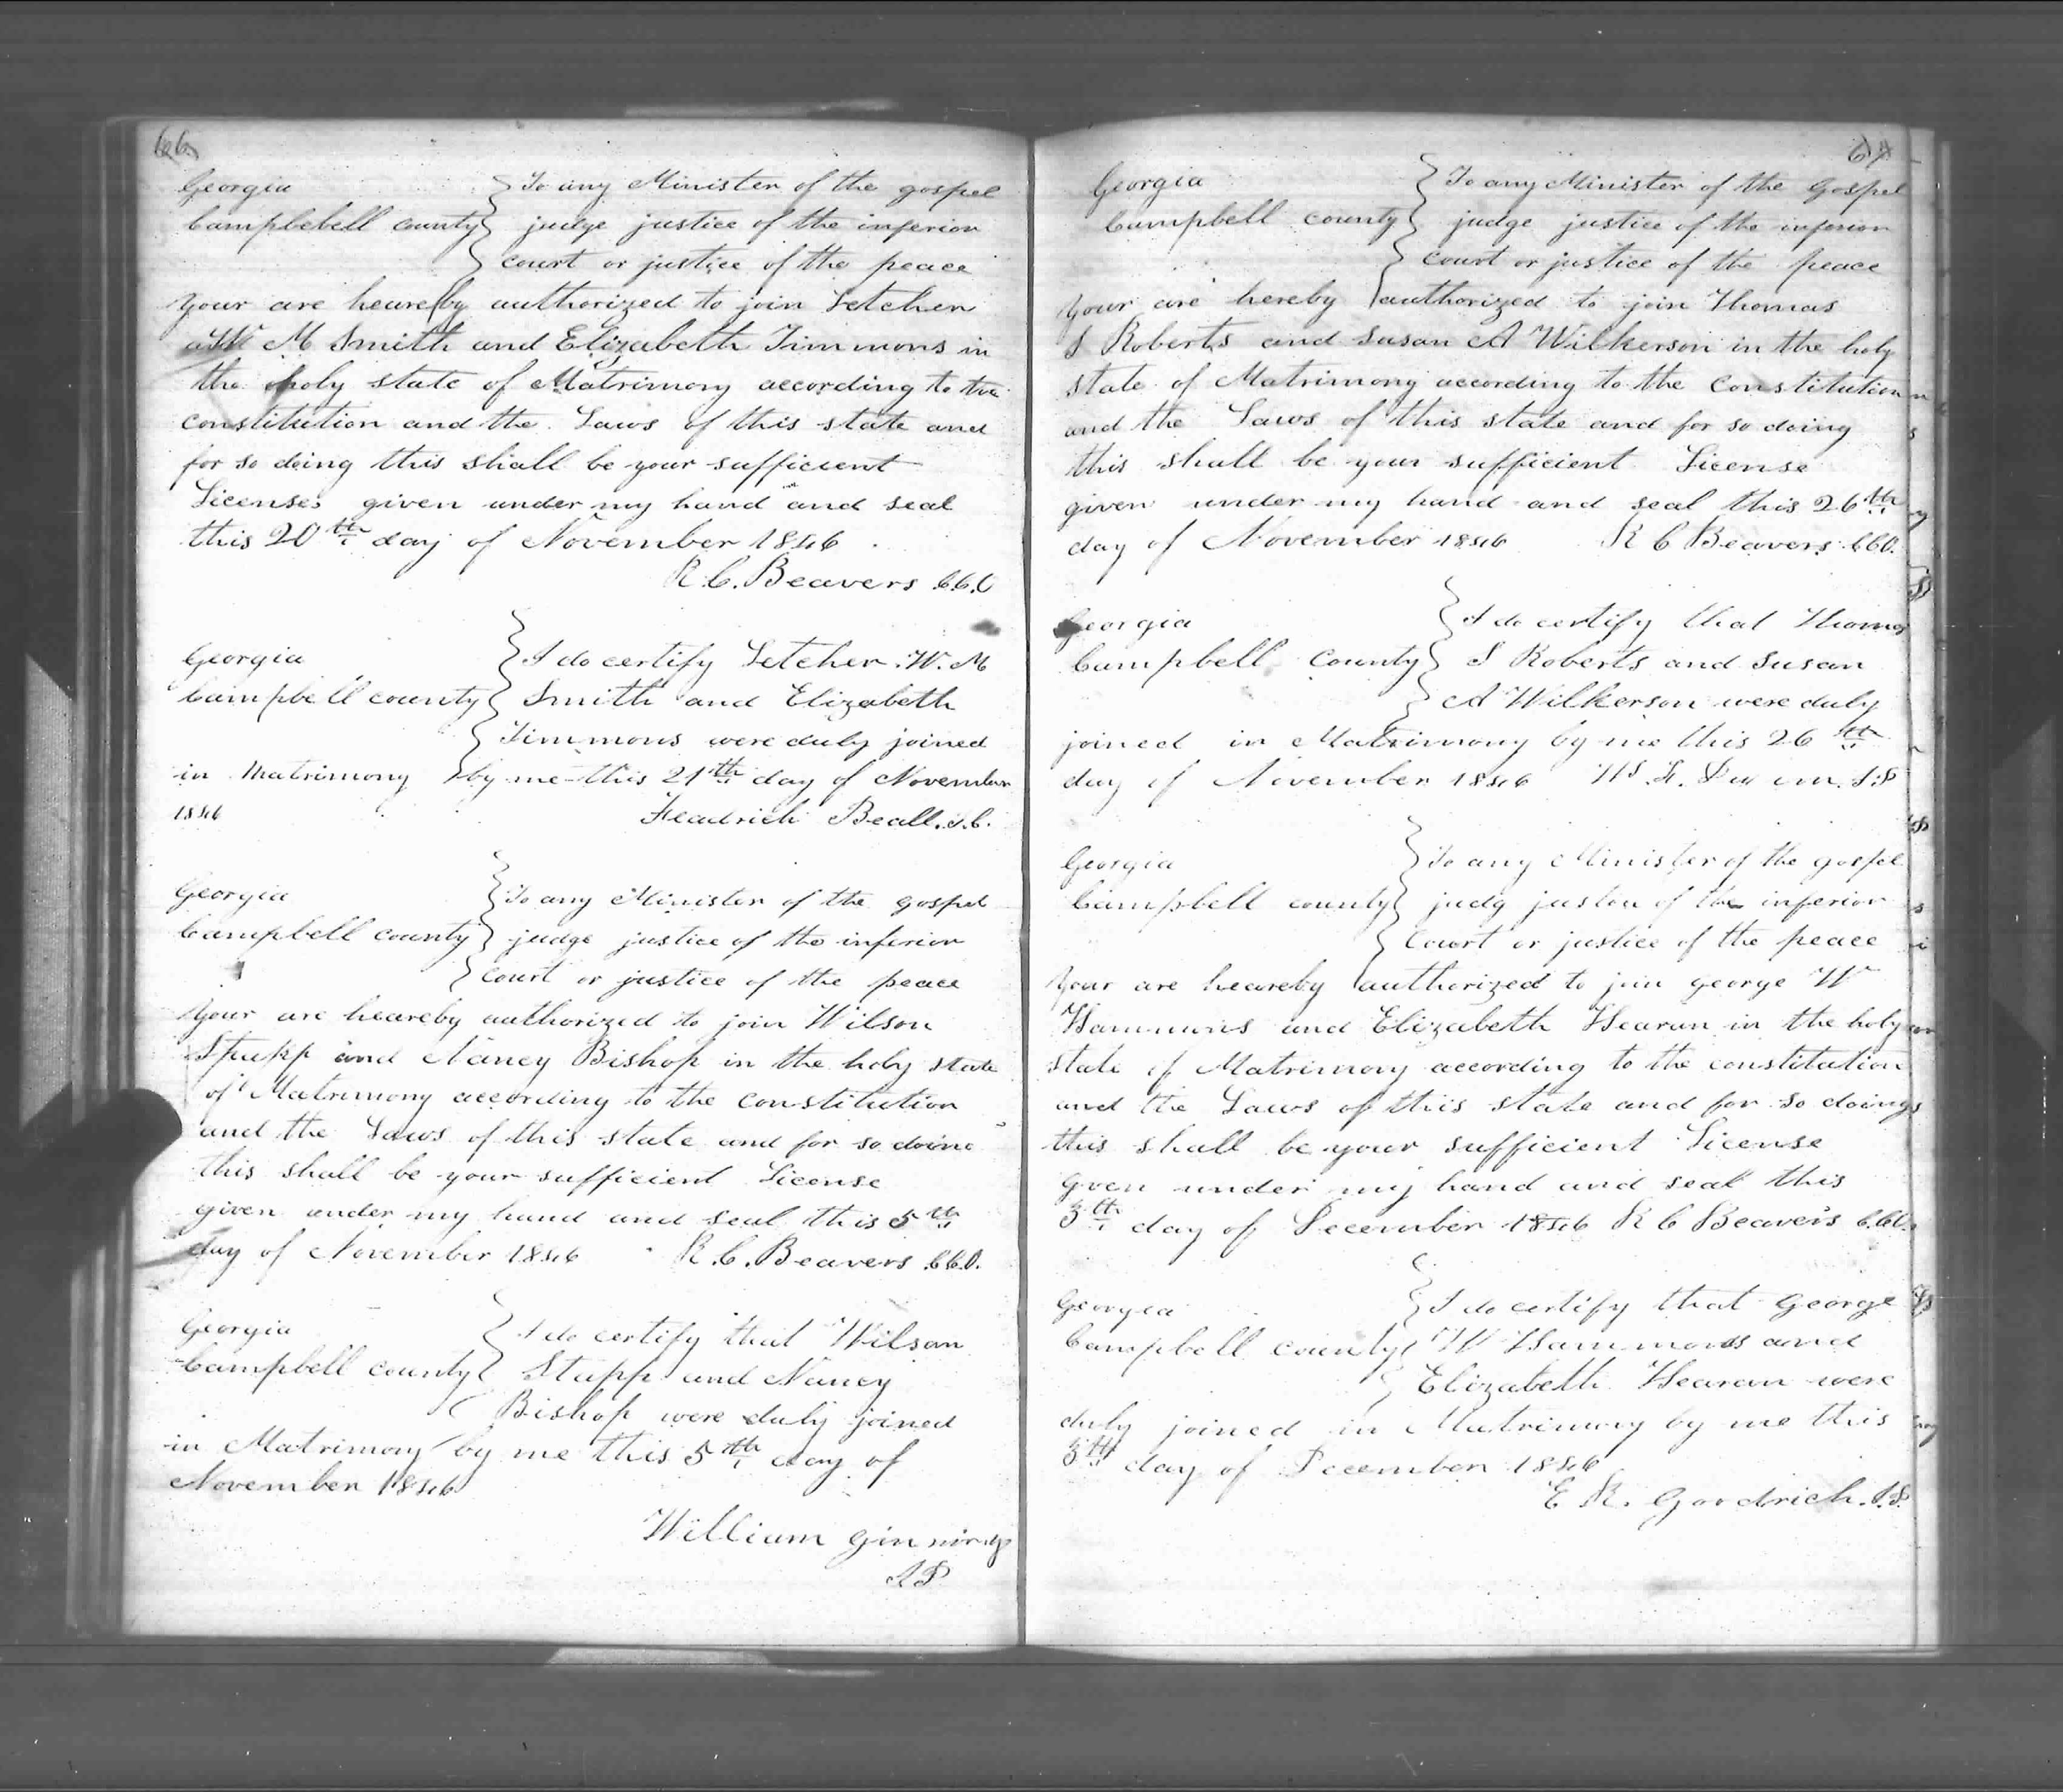 66
Georgia To any Minister of the gospel
Campbebell county judge justice of the inferior
court or justice of the peace
your are heareby authorized to join Letcher
W M Smith and Elizabeth Timmons in
the holy state of Matrimony according to the
constitution and the Laws of this state and
for so doing this shall be your sufficient
License given under my hand and seal
this 20th day of November 1846
R. C. Beavers C.C.O
Georgia I do certify Letcher W. M
Campbell county Smith and Elizabeth
Timmons were duly joined
in Matrimony by me this 21th day of November
1846 Feadrich Beall. J.C.
Georgia To any Minister of the gospel
Campbell county judge justice of the inferior
court or justice of the peace
your are heareby authorized to join Wilson
Stupp and Nancy Bishop in the holy state
of Matrimony according to the constitution
and the Laws of this state and for so doing
this shall be your sufficient License
given under my hand and seal this 5th
day of November 1846 R. C. Beavers C.C.O.
Georgia I do certify that Wilson
Campbell county Stupp and Nancy
Bishop were duly joined
in Matrimony by me this 5th day of
November 1846
William
J.P.
67
Georgia To any Minister of the Gospel
Campbell county judge justice of the inferior
court or justice of the peace
your are hereby authorized to join Thomas
S Roberts and Susan A Wilkerson in the holy
state of Matrimony according to the constitution
and the Laws of this state and for so doing
this shall be your sufficient License
given under my hand and seal this 26th
day of November 1846 R C Beavers C.C.O.
Georgia I do certify that Thomas
Campbell County S Roberts and Susan
A Wilkerson were duly
joined in Matrimony by me this 26th
day of November 1846 J.P
Georgia To any Minister of the gospel
Campbell county judg of the inferior
court or justice of the peace
your are heareby authorized to join george W
Hammons and Elizabeth Hearan in the holy
state of Matrimony according to the constitution
and the Laws of this state and for so doing
this shall be your sufficient License
given under my hand and seal this
3th day of December 1846 R C Beavers C.C.O.
Georgia I do certify that George
Campbell county W Hammons and
Elizabeth Hearan were
duly joined in Matrimony by me this
3th day of December 1846
E R. Goodrich. J.P.